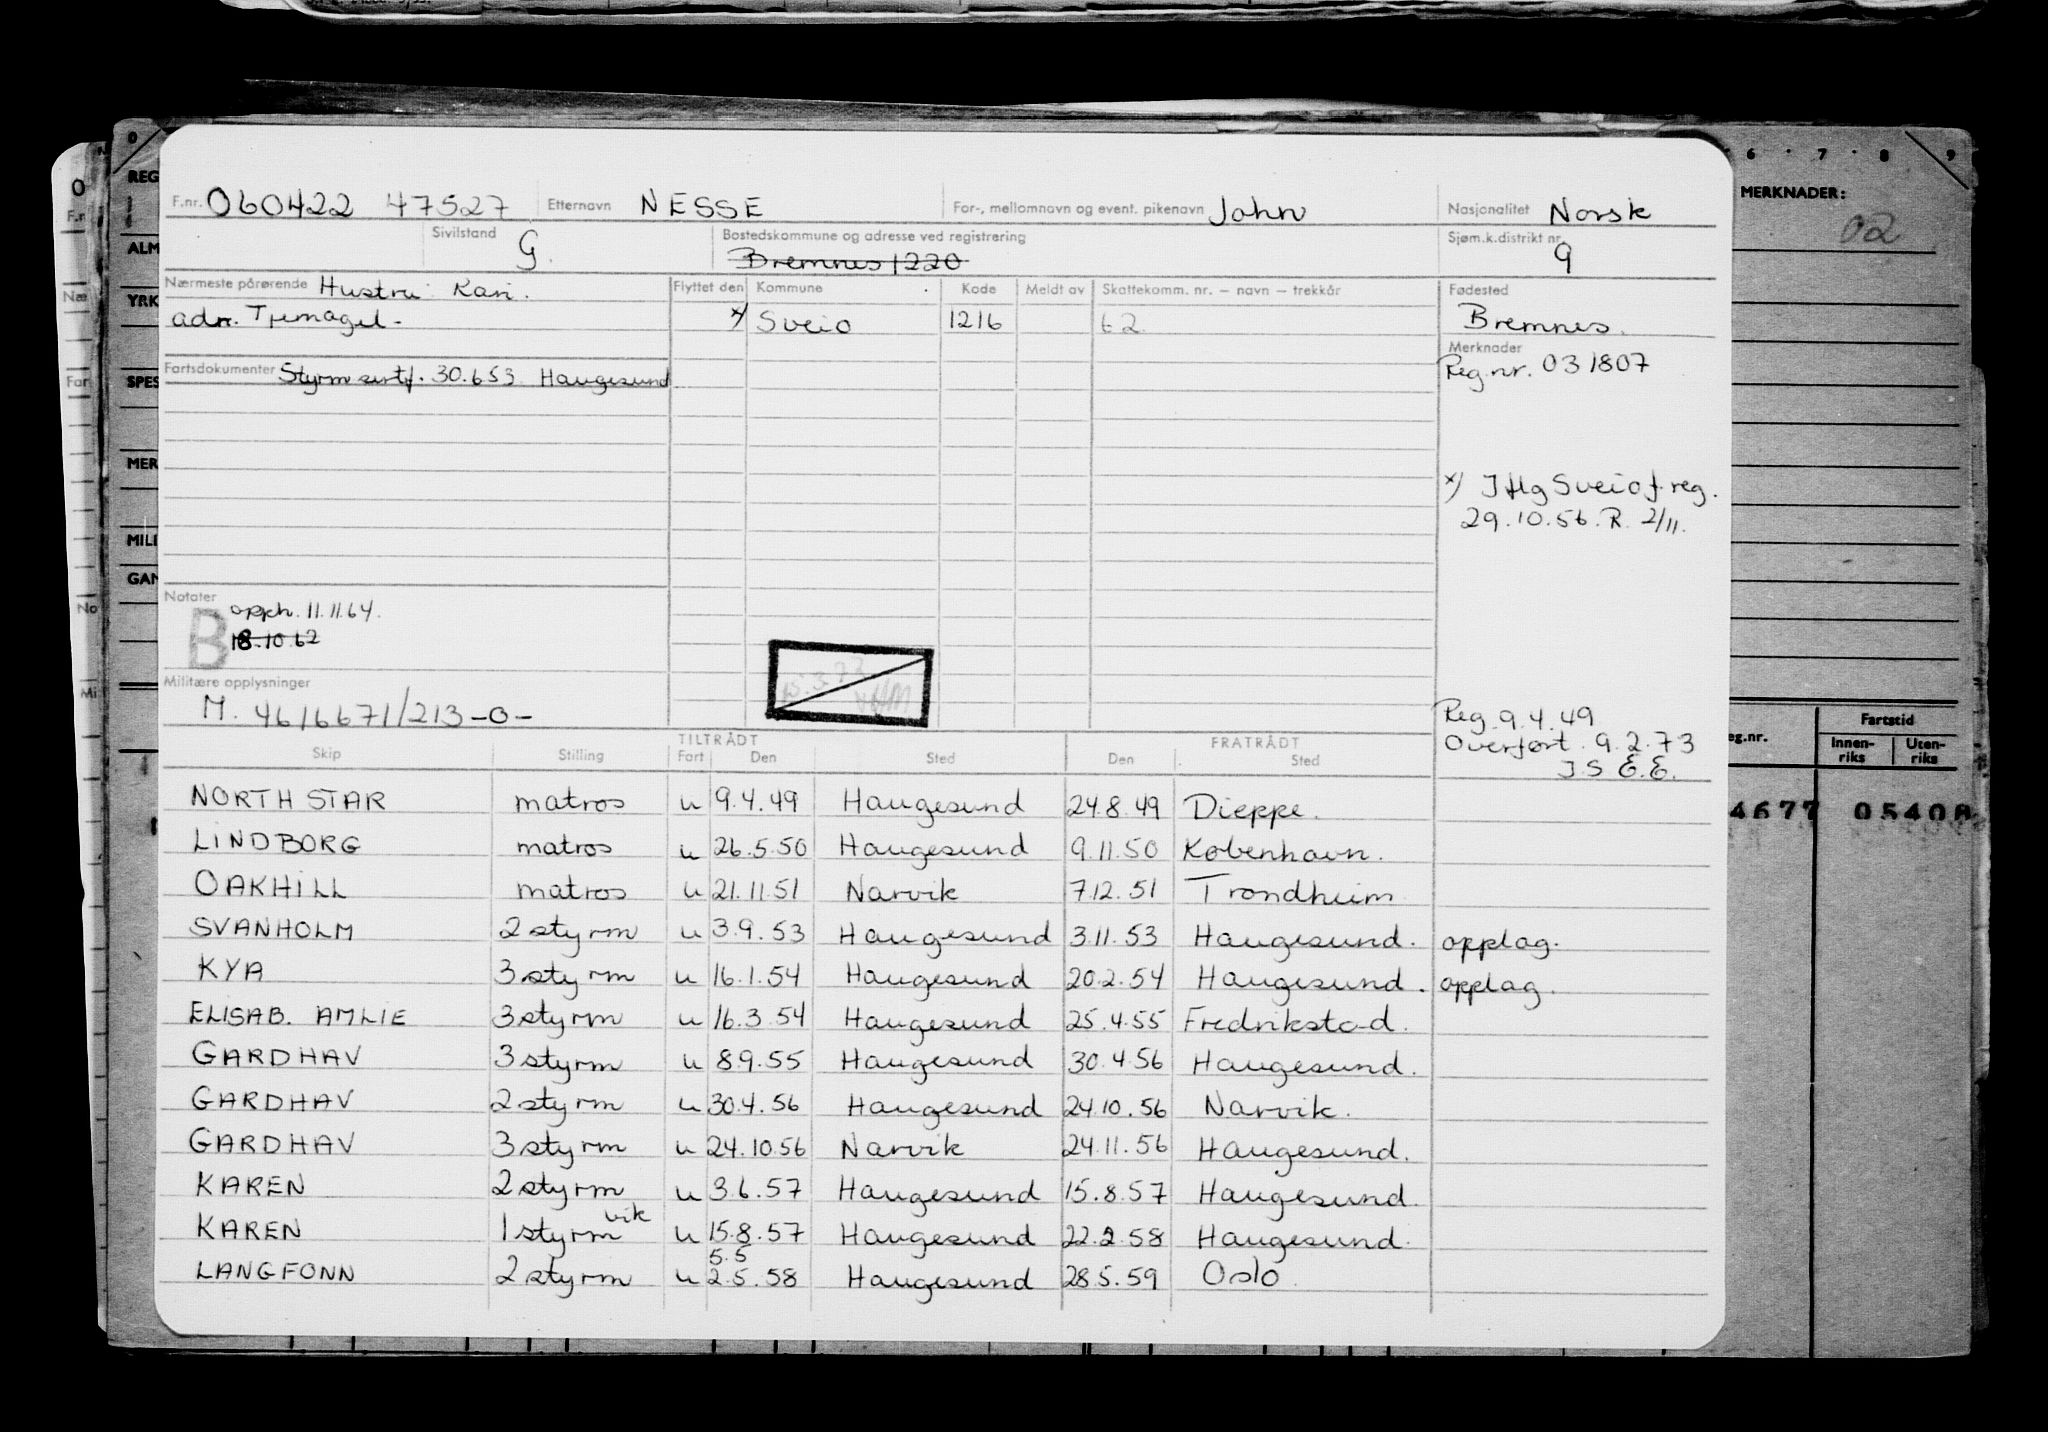 F.nr. 060422 47527 Etternavn NESSE For-, mellomnavn og event. pikenavn John Nasjonalitet Norsk
Sivilstand G. Bostedskommune og adresse ved registrering Bremnes 1220 Sjøm.k.distrikt nr. 9
Nærmeste pårørende Hustru Kari. Flyttet den Kommune Kode Meldt av Skattekomm. nr. – navn – trekkår Fødested
adr. Tjernagel- x) Sveio 1216 62 Bremnes.
Merknader
Fartsdokumenter Styrm sertf. 30.653 Haugesund Reg.nr. 031807
x) Iflg Sveio f.reg.
29.10.56. R. 2/11.
Notater
B opph. 11.11.64.
18.10.62
Militære opplysninger
M. 4616671/213-0-
Reg. 9.4.49
Overført. 9.2.73
J.S E.E.
TILTRÅDT FRATRÅDT
Skip Stilling Fart Den Sted Den Sted
NORTH STAR matros u 9.4.49 Haugesund 24.8.49 Dieppe.
LINDBORG matros u 26.5.50 Haugesund 9.11.50 København.
OAKHILL matros u 21.11.51 Narvik 7.12.51 Trondheim
SVANHOLM 2 styrm u 3.9.53 Haugesund 3.11.53 Haugesund. opplag.
KYA 3 styrm u 16.1.54 Haugesund 20.2.54 Haugesund. opplag.
ELISAB. AMLIE 3 styrm u 16.3.54 Haugesund 25.4.55 Fredrikstad.
GARDHAV 3 styrm u 8.9.55 Haugesund 30.4.56 Haugesund.
GARDHAV 2 styrm u 30.4.56 Haugesund 24.10.56 Narvik.
GARDHAV 3 styrm u 24.10.56 Narvik 24.11.56 Haugesund.
KAREN 2 styrm u 3.6.57 Haugesund 15.8.57 Haugesund.
KAREN 1 styrm vik u 15.8.57 Haugesund 22.2.58 Haugesund.
5.5
LANGFONN 2 styrm u 2.5.58 Haugesund 28.5.59 Oslo.
0
REG
ALM
YRK
SPES
MER
MILI
GAN
6 7 8 9
MERKNADER:
02
eg.nr. Fartstid
Innen-riks Uten-riks
4677 05408